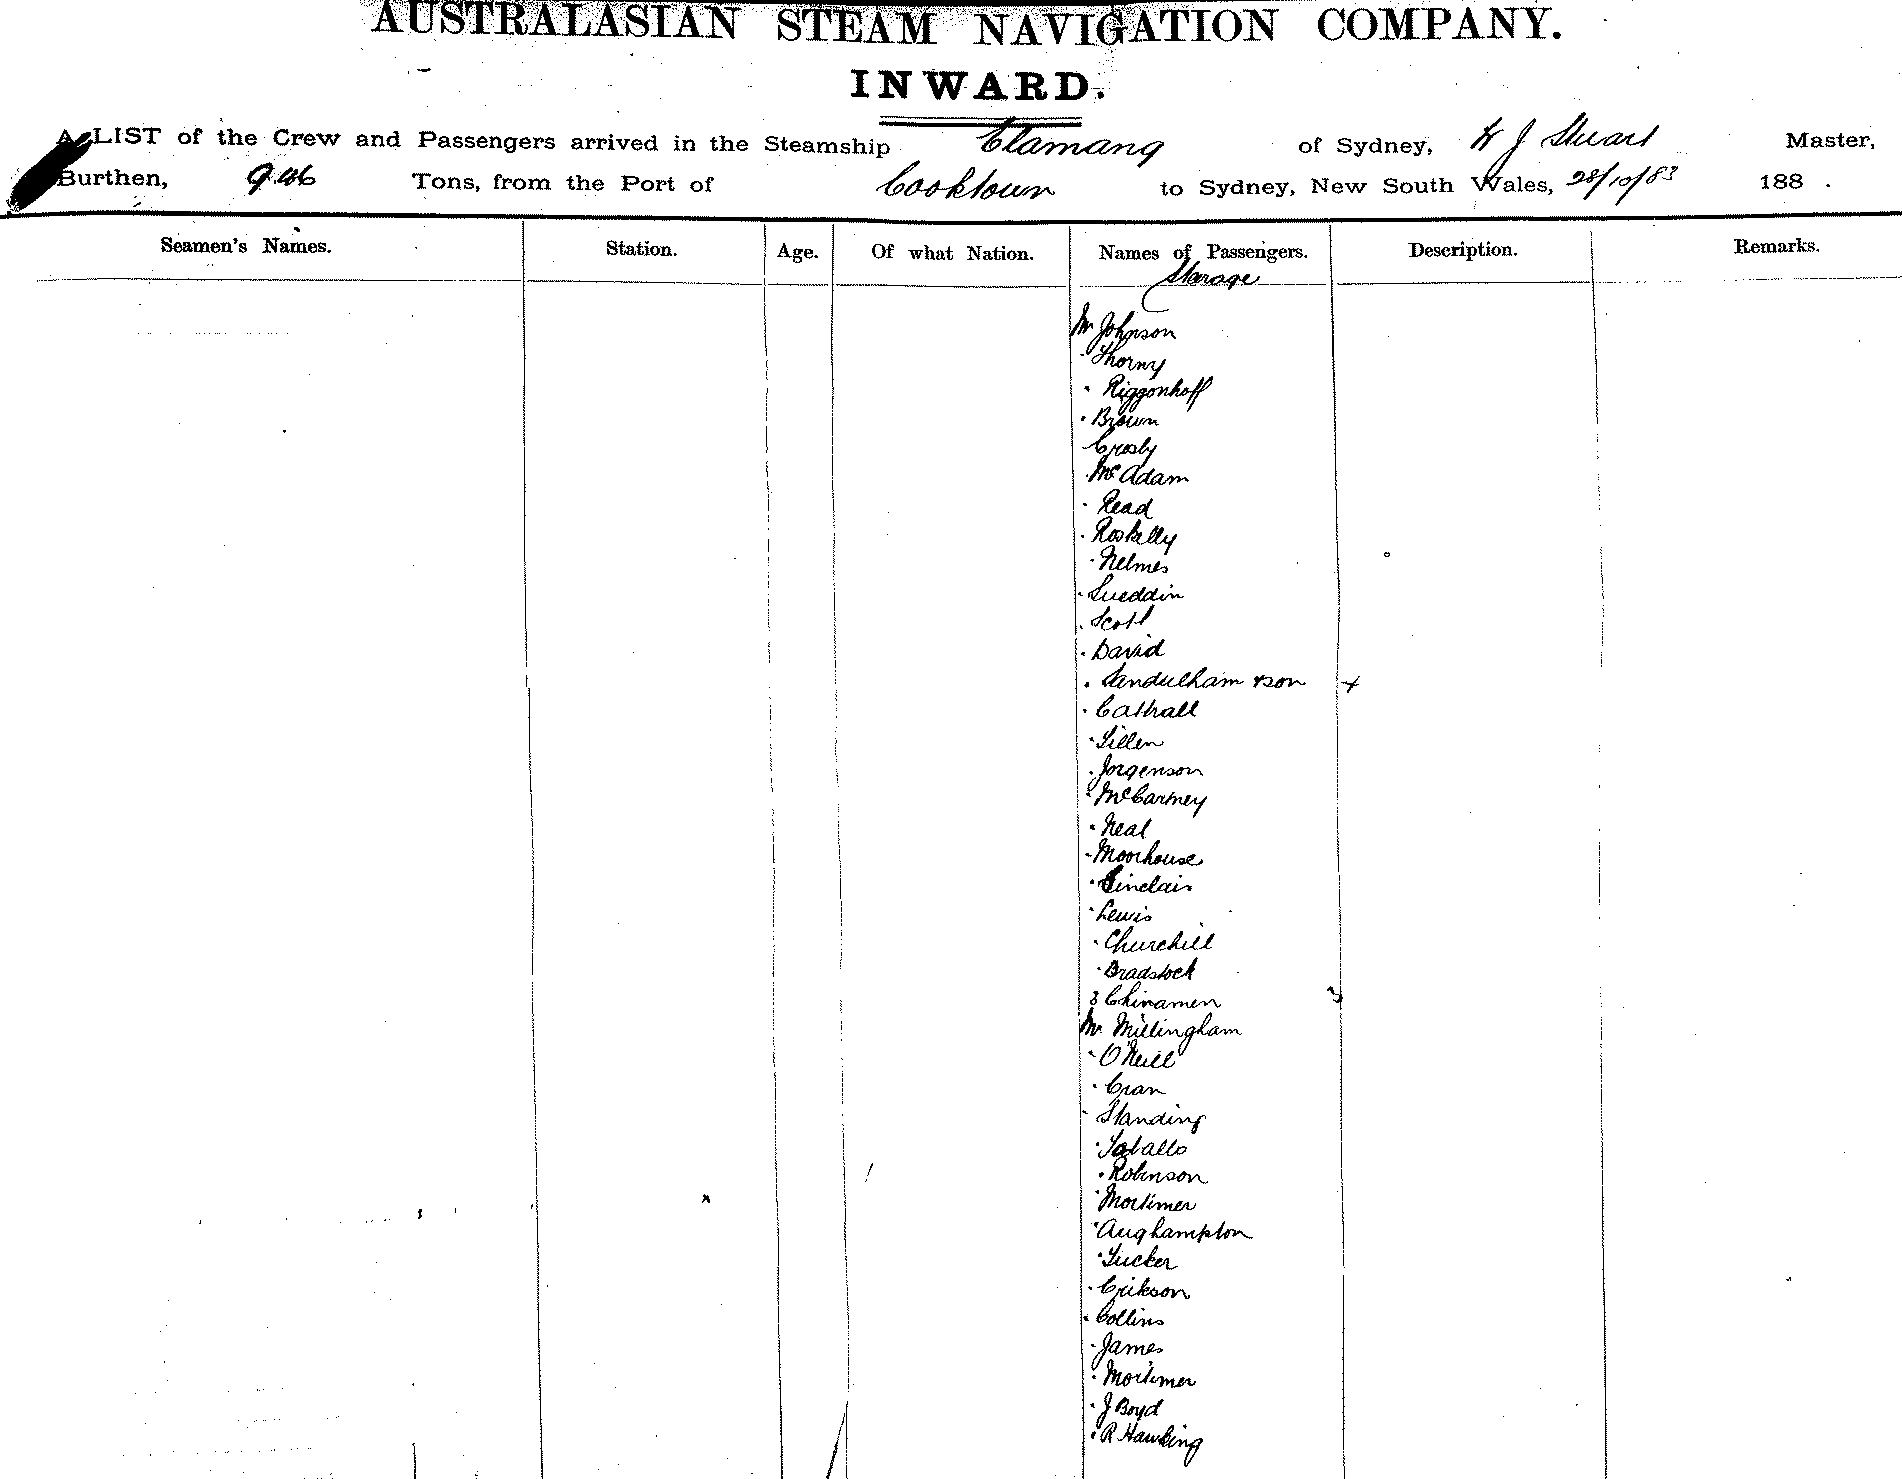 AUSTRALASIAN STEAM NAVIGATION COMPANY.
INWARD.
A LIST of the Crew and Passengers arrived in the Steamship Elamang of Sydney, W J Stuart Master,
Burthen, Tons, from the Port of Cooktown to Sydney, New South Wales, 28/10/83 188 .
Seamen's Names. Station. Age. Of what Nation. Names of Passengers. Description. Remarks.
Starage
Mr Johnson
" Thorny
" Riggonhoff
" Brown
Crosby
" McAdam
" Read
" Roskelly
" Nelmes
" Sueddin
" Scott
" David
" +
" Cattrall
" Lillen
" Jorgenson
" McCartney
" Neal
" Moorhouse
" Sinclair
" Lewis
" Churchill
" Bradstock
3 Chinamen 3
Mr Millingham
" O'Neill
" Cran
" Standing
"
" Robinson
" Mortimer
" Aughampton
" Tucker
" Erikson
" Collins
" James
" Mortimer
" J Boyd
" R Hawking